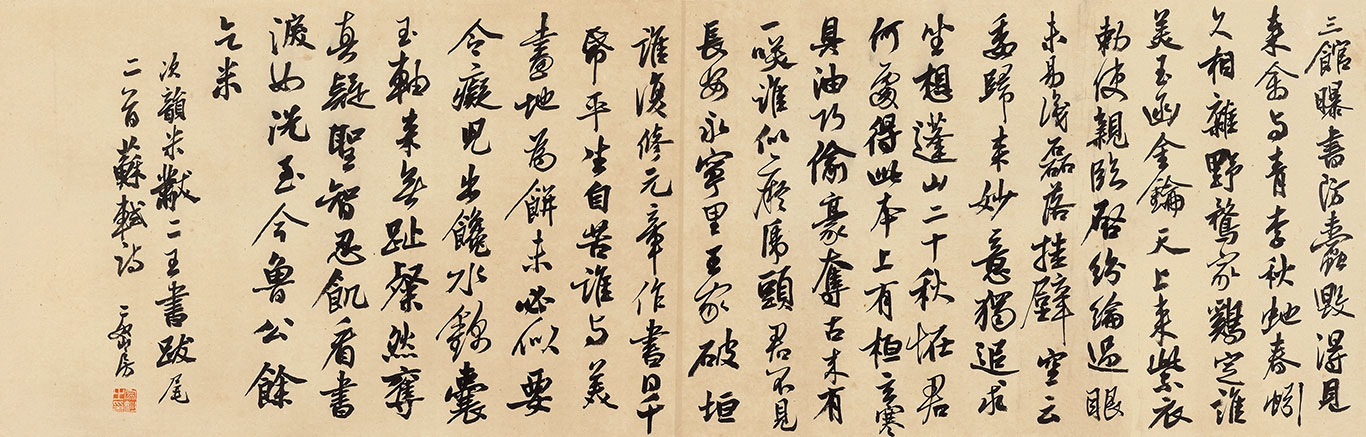 三館曝書防蠹毀得見
来禽与青李秋虵春蚓
久相雜野鶩家鷄定誰
美玉函金鑰天上来紫衣
勅使親臨啓紛綸過眼
未易識磊落挂壁空云
委歸来妙意獨追求
坐想蓬山二十秋恠君
何處得此本上有桓玄寒
具油巧偷豪奪古来有
一笑誰似癡虎頭君不見
長安永寧里王家破垣
誰復修元章作書日千
帋平生自苦誰与美
畫地為餅未必似要
令癡兒出饞水錦囊
玉軸来無趾粲然奪
真疑聖智忍飢看書
淚如洗至今魯公餘
乞米
次韻米黻二王書跋尾
二首蘇軾詩